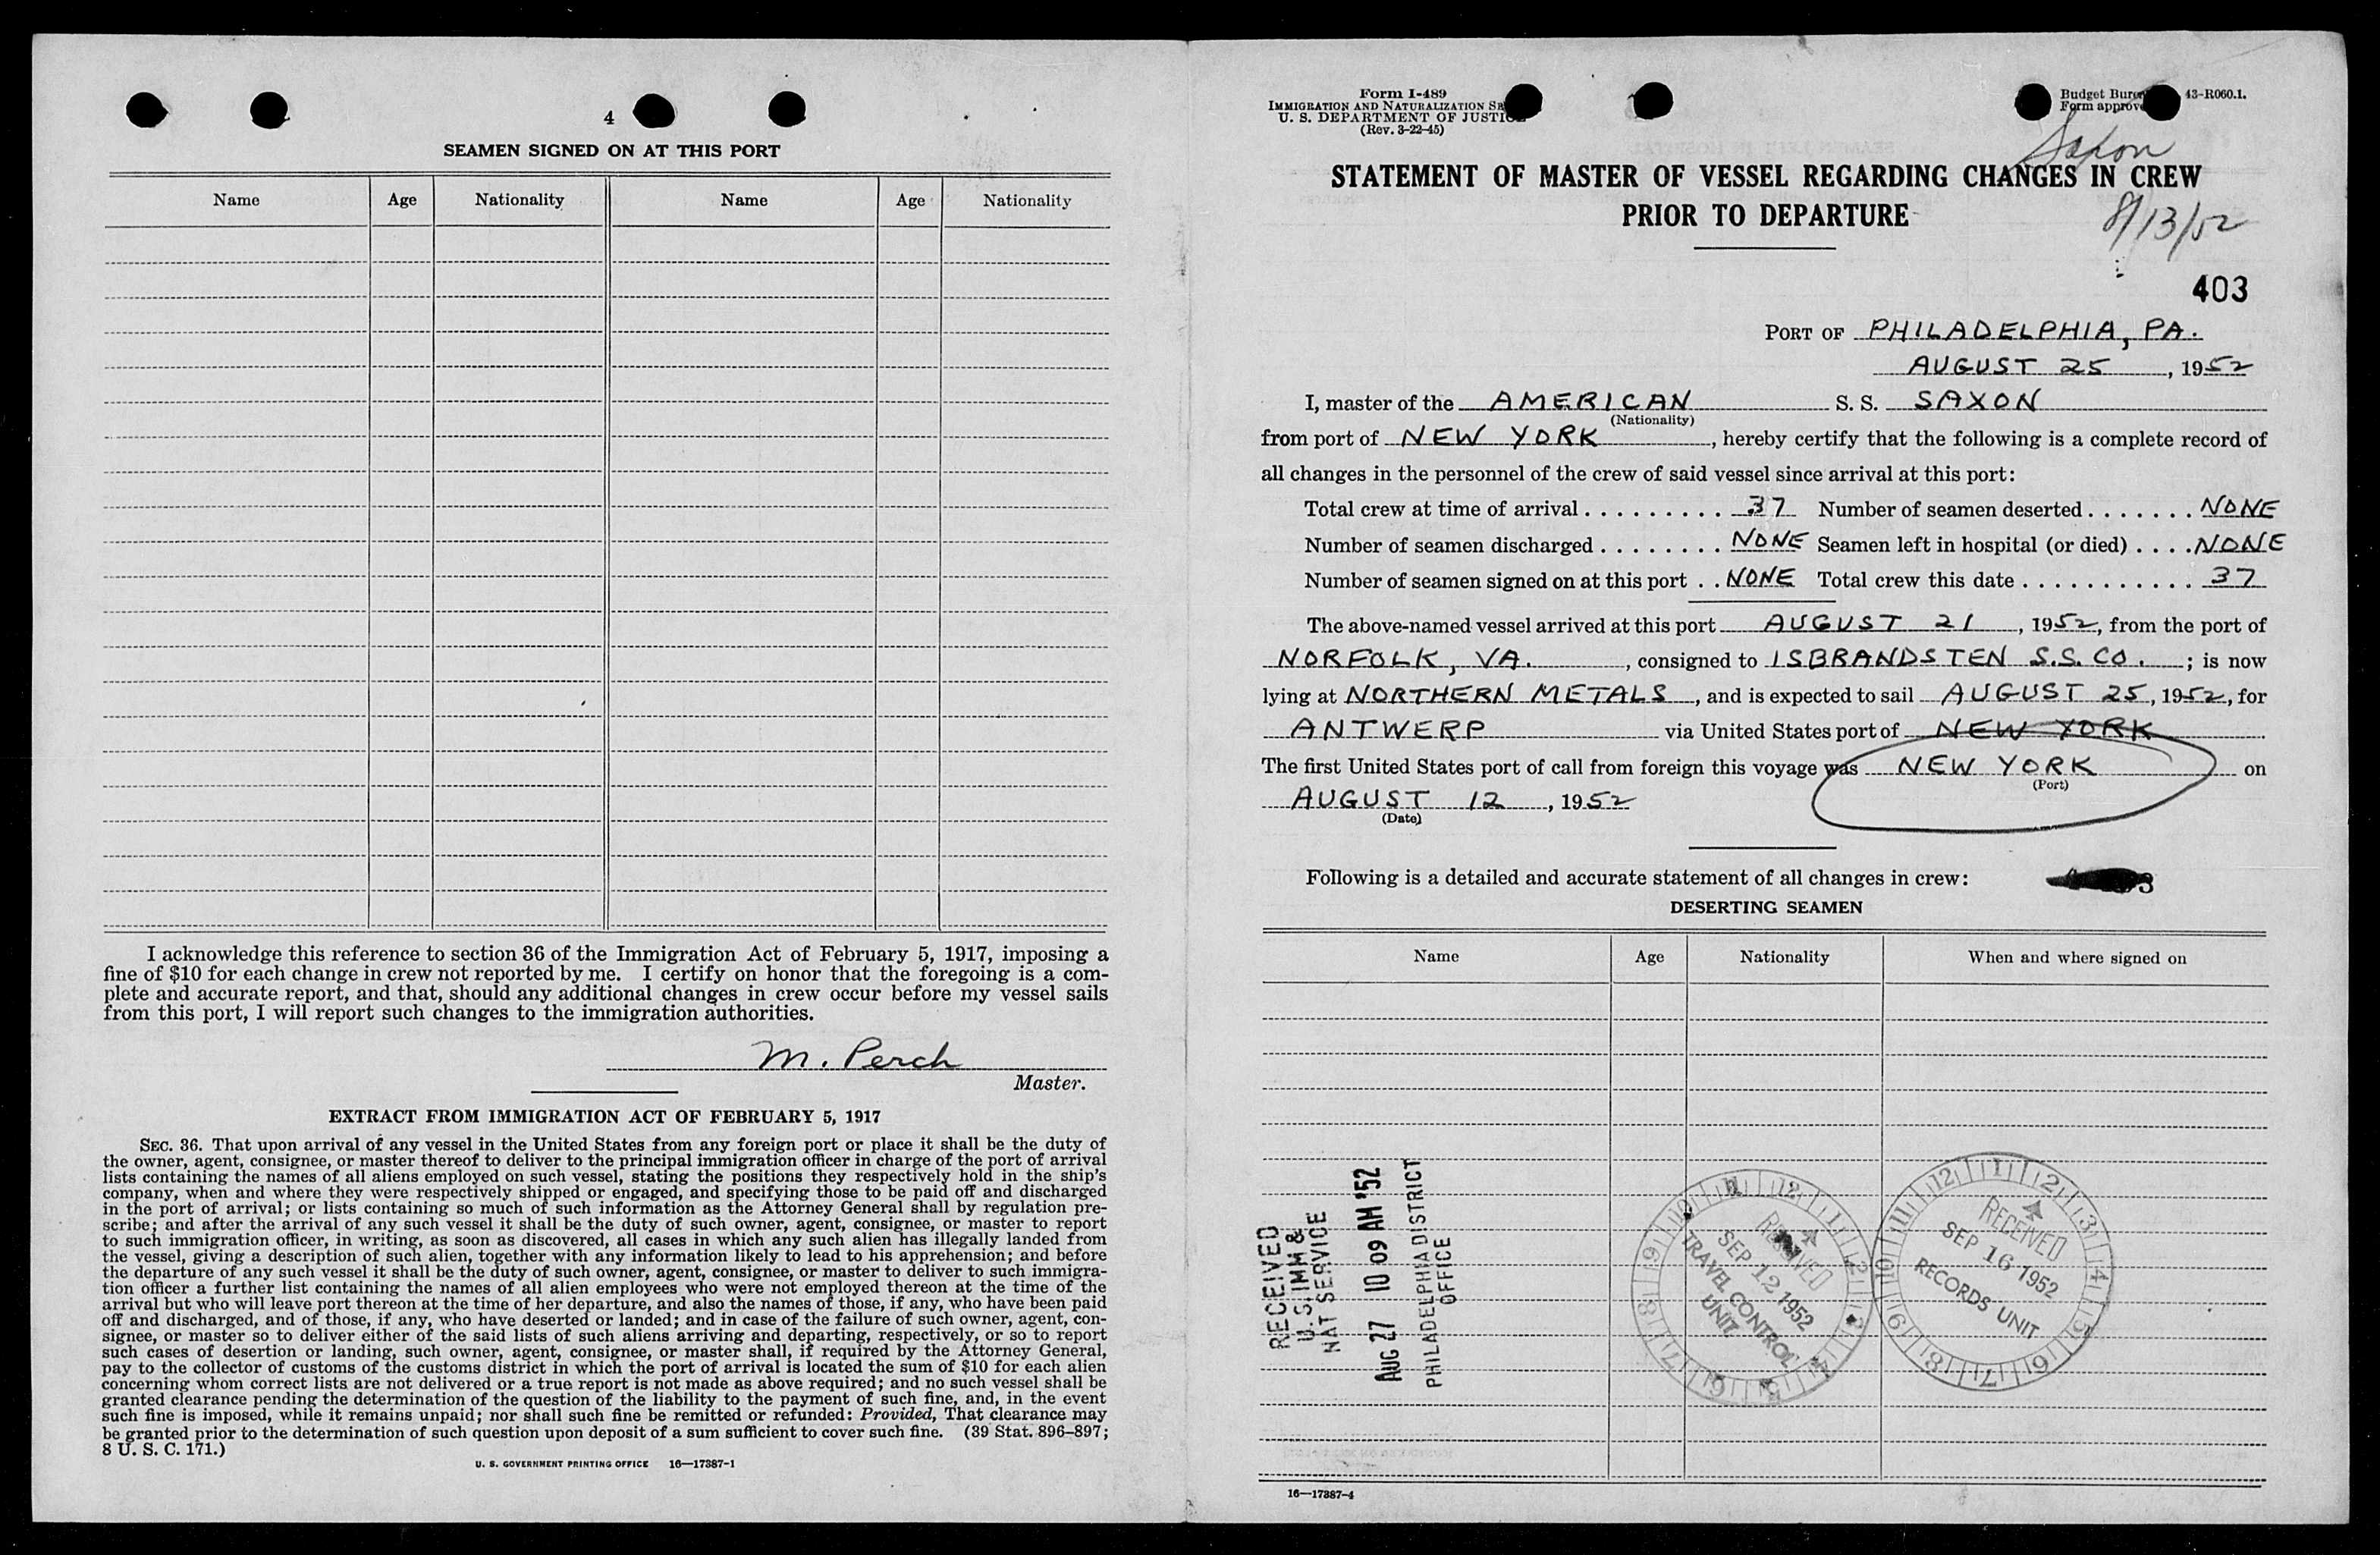 4
SEAMEN SIGNED ON AT THIS PORT
Name Age Nationality Name Age Nationality
I acknowledge this reference to section 36 of the Immigration Act of February 5, 1917, imposing a
fine of $10 for each change in crew not reported by me. I certify on honor that the foregoing is a com-
plete and accurate report, and that, should any additional changes in crew occur before my vessel sails
from this port, I will report such changes to the immigration authorities.
M. Perch
Master.
EXTRACT FROM IMMIGRATION ACT OF FEBRUARY 5, 1917
SEC. 36. That upon arrival of any vessel in the United States from any foreign port or place it shall be the duty of
the owner, agent, consignee, or master thereof to deliver to the principal immigration officer in charge of the port of arrival
lists containing the names of all aliens employed on such vessel, stating the positions they respectively hold in the ship's
company, when and where they were respectively shipped or engaged, and specifying those to be paid off and discharged
in the port of arrival; or lists containing so much of such information as the Attorney General shall by regulation pre-
scribe; and after the arrival of any such vessel it shall be the duty of such owner, agent, consignee, or master to report
to such immigration officer, in writing, as soon as discovered, all cases in which any such alien has illegally landed from
the vessel, giving a description of such alien, together with any information likely to lead to his apprehension; and before
the departure of any such vessel it shall be the duty of such owner, agent, consignee, or master to deliver to such immigra-
tion officer a further list containing the names of all alien employees who were not employed thereon at the time of the
arrival but who will leave port thereon at the time of her departure, and also the names of those, if any, who have been paid
off and discharged, and of those, if any, who have deserted or landed; and in case of the failure of such owner, agent, con-
signee, or master so to deliver either of the said lists of such aliens arriving and departing, respectively, or so to report
such cases of desertion or landing, such owner, agent, consignee, or master shall, if required by the Attorney General,
pay to the collector of customs of the customs district in which the port of arrival is located the sum of $10 for each alien
concerning whom correct lists are not delivered or a true report is not made as above required; and no such vessel shall be
granted clearance pending the determination of the question of the liability to the payment of such fine, and, in the event
such fine is imposed, while it remains unpaid; nor shall such fine be remitted or refunded: Provided, That clearance may
be granted prior to the determination of such question upon deposit of a sum sufficient to cover such fine. (39 Stat. 896–897;
8 U. S. C. 171.)
U. S. GOVERNMENT PRINTING OFFICE 16—17387-1
Form I-489
IMMIGRATION AND NATURALIZATION
U. S. DEPARTMENT OF JUSTICE
(Rev. 3-22-45)
Budget 43-R060.1.
Form
Saxon
STATEMENT OF MASTER OF VESSEL REGARDING CHANGES IN CREW
PRIOR TO DEPARTURE
8/13/52
403
PORT OF PHILADELPHIA, PA.
AUGUST 25, 1952
I, master of the AMERICAN S. S. SAXON
(Nationality)
from port of NEW YORK, hereby certify that the following is a complete record of
all changes in the personnel of the crew of said vessel since arrival at this port:
Total crew at time of arrival . . . . . . . . . 37 Number of seamen deserted . . . . . . . NONE
Number of seamen discharged . . . . . . . . NONE Seamen left in hospital (or died) . . . . NONE
Number of seamen signed on at this port . . NONE Total crew this date . . . . . . . . . . . 37
The above-named vessel arrived at this port AUGUST 21, 1952, from the port of
NORFOLK, VA., consigned to ISBRANDSTEN S.S. CO.; is now
lying at NORTHERN METALS, and is expected to sail AUGUST 25, 1952, for
ANTWERP via United States port of NEW YORK
The first United States port of call from foreign this voyage was NEW YORK on
(Port)
AUGUST 12, 1952
(Date)
Following is a detailed and accurate statement of all changes in crew:
DESERTING SEAMEN
Name Age Nationality When and where signed on
RECEIVED
U.S. IMM &
NAT SERVICE
AUG 27 10 09 AM '52
PHILADELPHIA DISTRICT
OFFICE
RECEIVED
SEP 12 1952
TRAVEL CONTROL
UNIT
12 1 2 3 4 5 6 7 8 9 10 11
RECEIVED
SEP 16 1952
RECORDS UNIT
12 1 2 3 4 5 6 7 8 9 10 11
16—17387-4